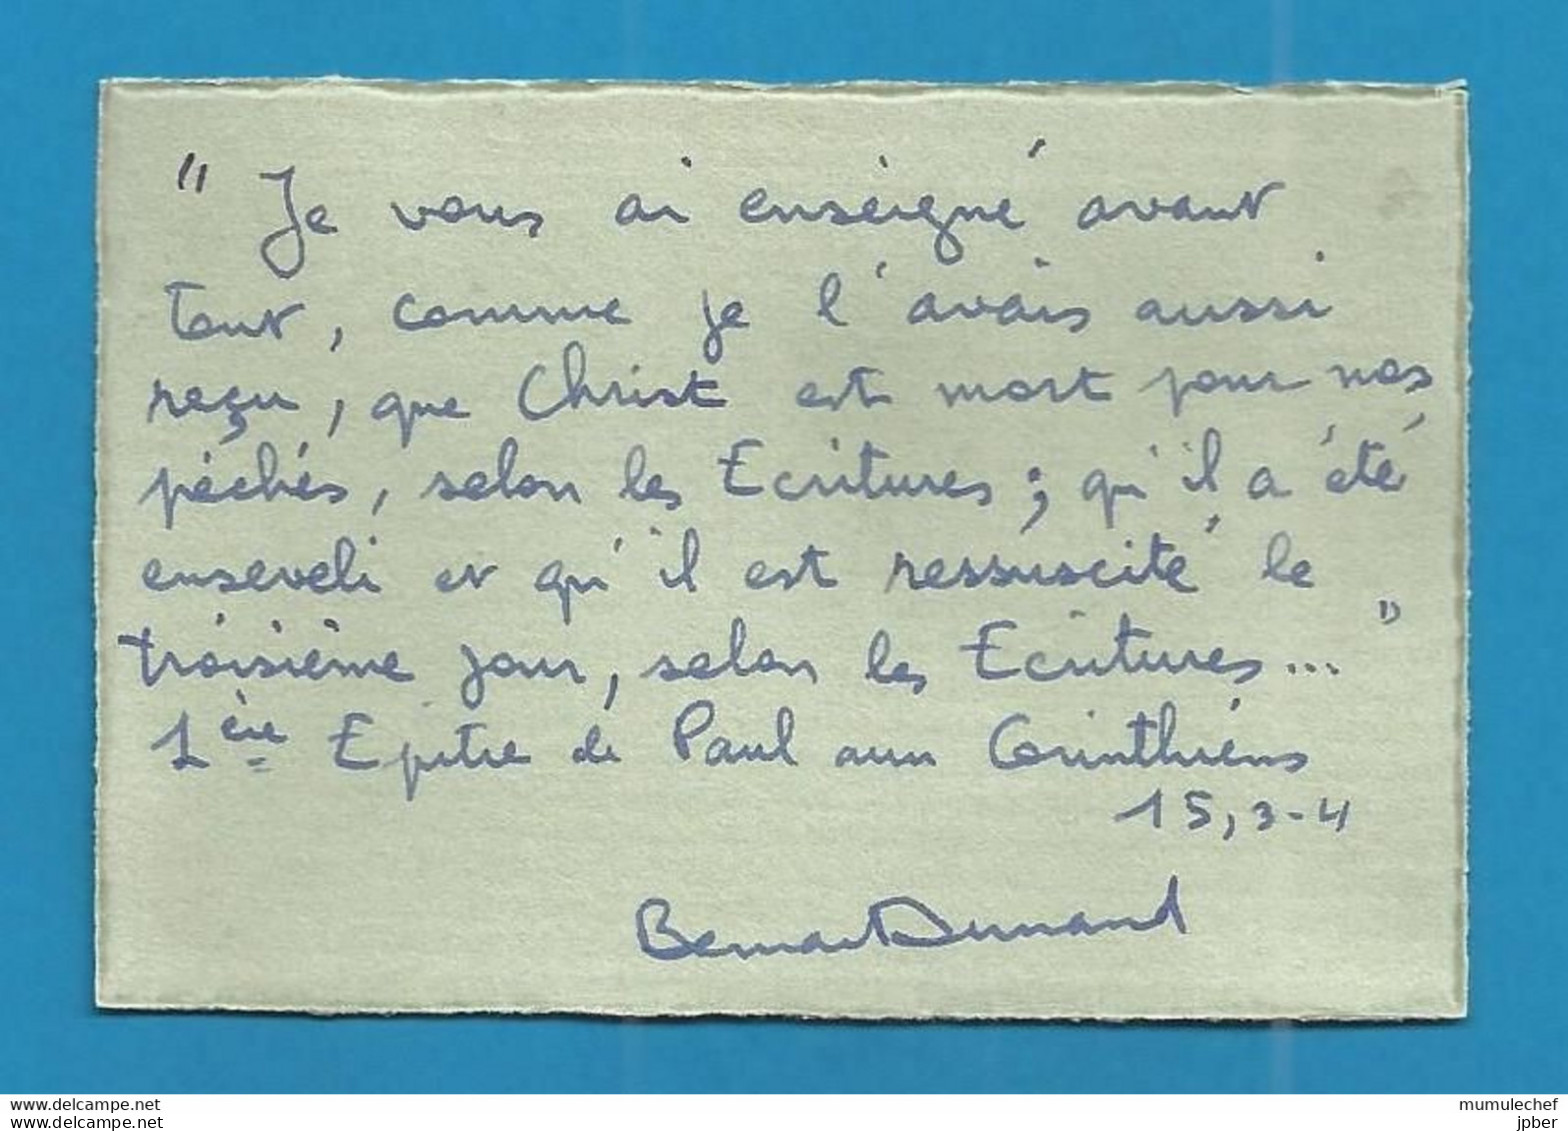 " Je vous ai enseigné avant
tout, comme je l'avais aussi
reçu, que Christ est mort pour nos
péchés, selon les Ecritures ; qu'il a été
enseveli et qu'il est ressuscité le
troisième jour, selon les Ecritures... "
1ère Epitre de Paul aux Corinthiens
15, 3-4
Bernard Dunand
www.delcampe.net
mumulechef
jpber